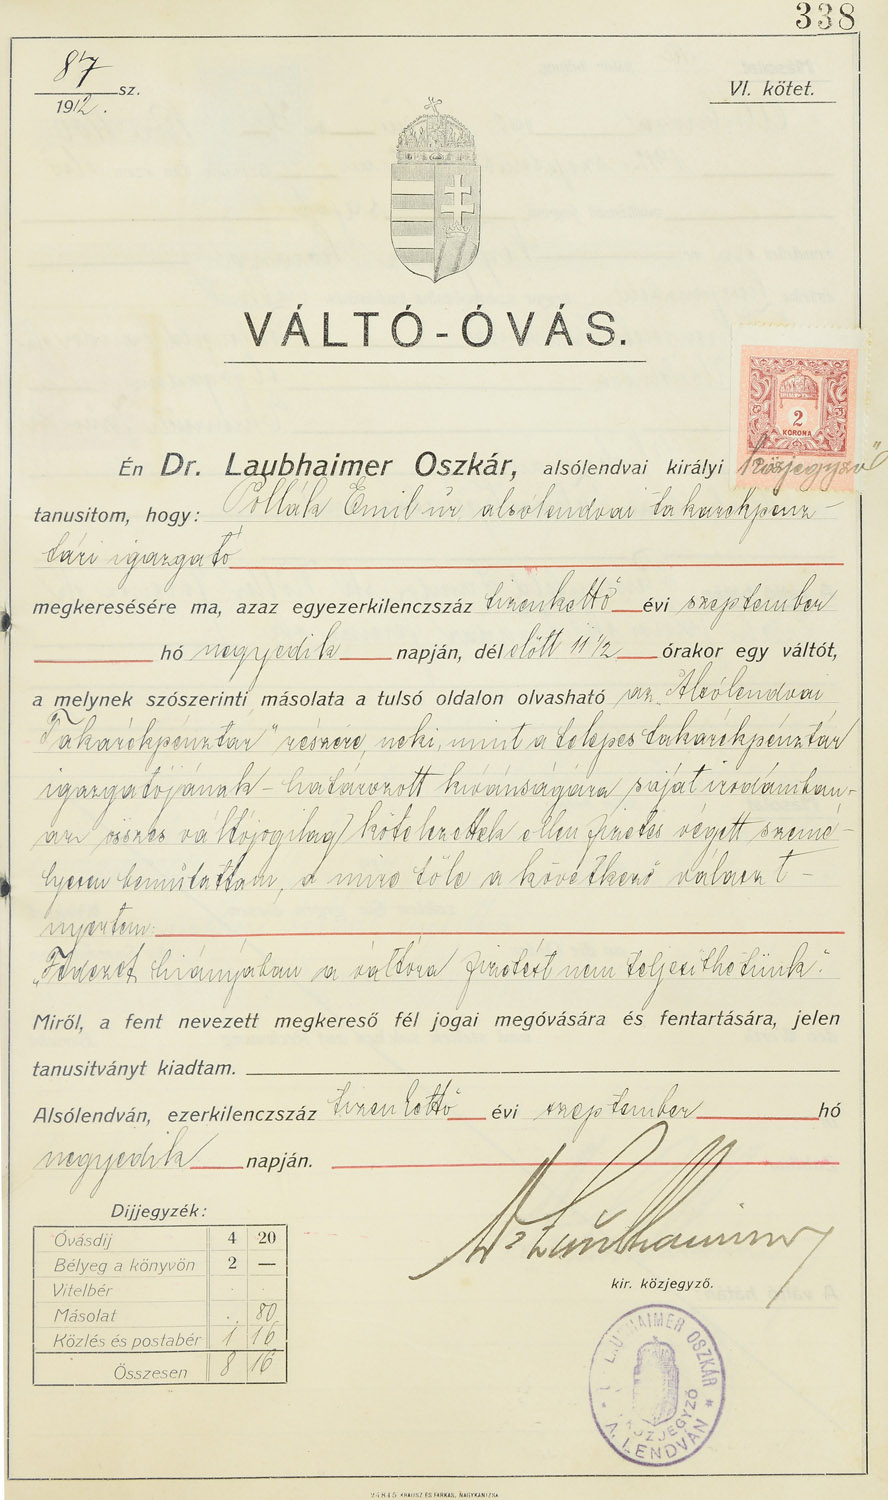 338
87 sz.
1912.
VI. kötet.
VÁLTÓ-ÓVÁS.
2
KORONA
Én Dr. Laubhaimer Oszkár, alsólendvai királyi közjegyző
tanusitom, hogy: Pollák Emil úr alsólendvai takarékpénz-
tári igazgató
megkeresésére ma, azaz egyezerkilenczszáz tizenkettő évi szeptember
hó negyedik napján, dél előtt 11 1/2 órakor egy váltót,
a melynek szószerinti másolata a tulsó oldalon olvasható az „Alsólendvai
Takarékpénztár" részére, neki, mint a telepes takarékpénztár
igazgatójának - határozott kivánságára saját irodámban -
az összes váltójogilag kötelezettek ellen fizetés végett szemé-
lyesen bemutattam, a mire tőle a következő választ -
nyertem:
„Fedezet hiányában a váltóra fizetést nem teljesithetünk."
Miről, a fent nevezett megkereső fél jogai megóvására és fentartására, jelen
tanusitványt kiadtam.
Alsólendván, ezerkilenczszáz tizenkettő évi szeptember hó
negyedik napján.
Dr Laubhaimer
kir. közjegyző.
Dijjegyzék:
Óvásdij 4 20
Bélyeg a könyvön 2 —
Vitelbér
Másolat 80
Közlés és postabér 1 16
Összesen 8 16
LAUBHAIMER OSZKÁR
KÖZJEGYZŐ
A. LENDVÁN
24845 KRAUSZ ÉS FARKAS, NAGYKANIZSA